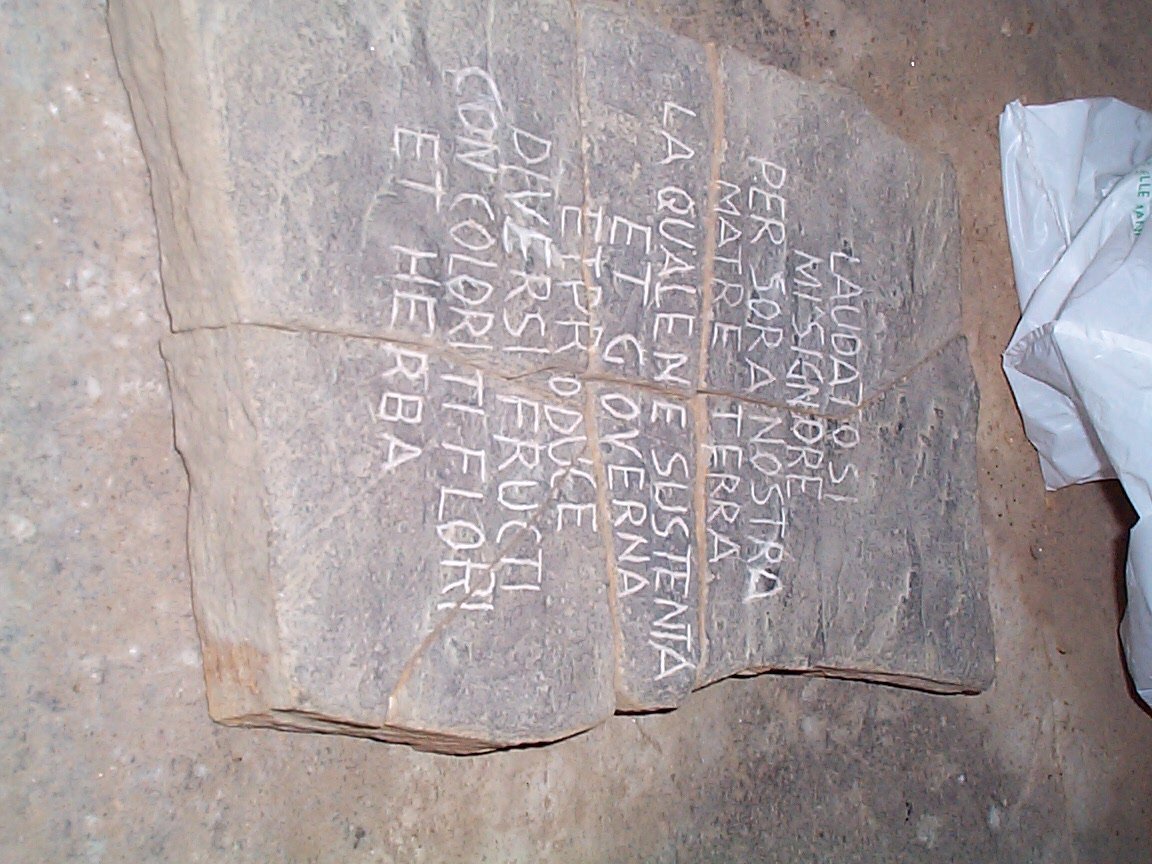 LAUDATO SI
MI SIGNORE
PER SORA NOSTRA
MATRE TERRA
LA QUALE NE SUSTENTA
ET GOVERNA
ET PRODUCE
DIVERSI FRUCTI
CON COLORITI FLORI
ET HERBA